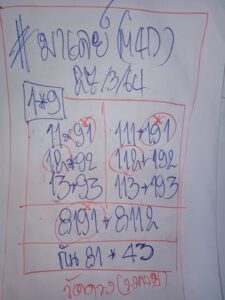 #มาเลย์ (M4D)
27/3/64
1*9
11*91 111*191
12*92 112*192
13*93 113*193
8191*8112
กัน 81*43